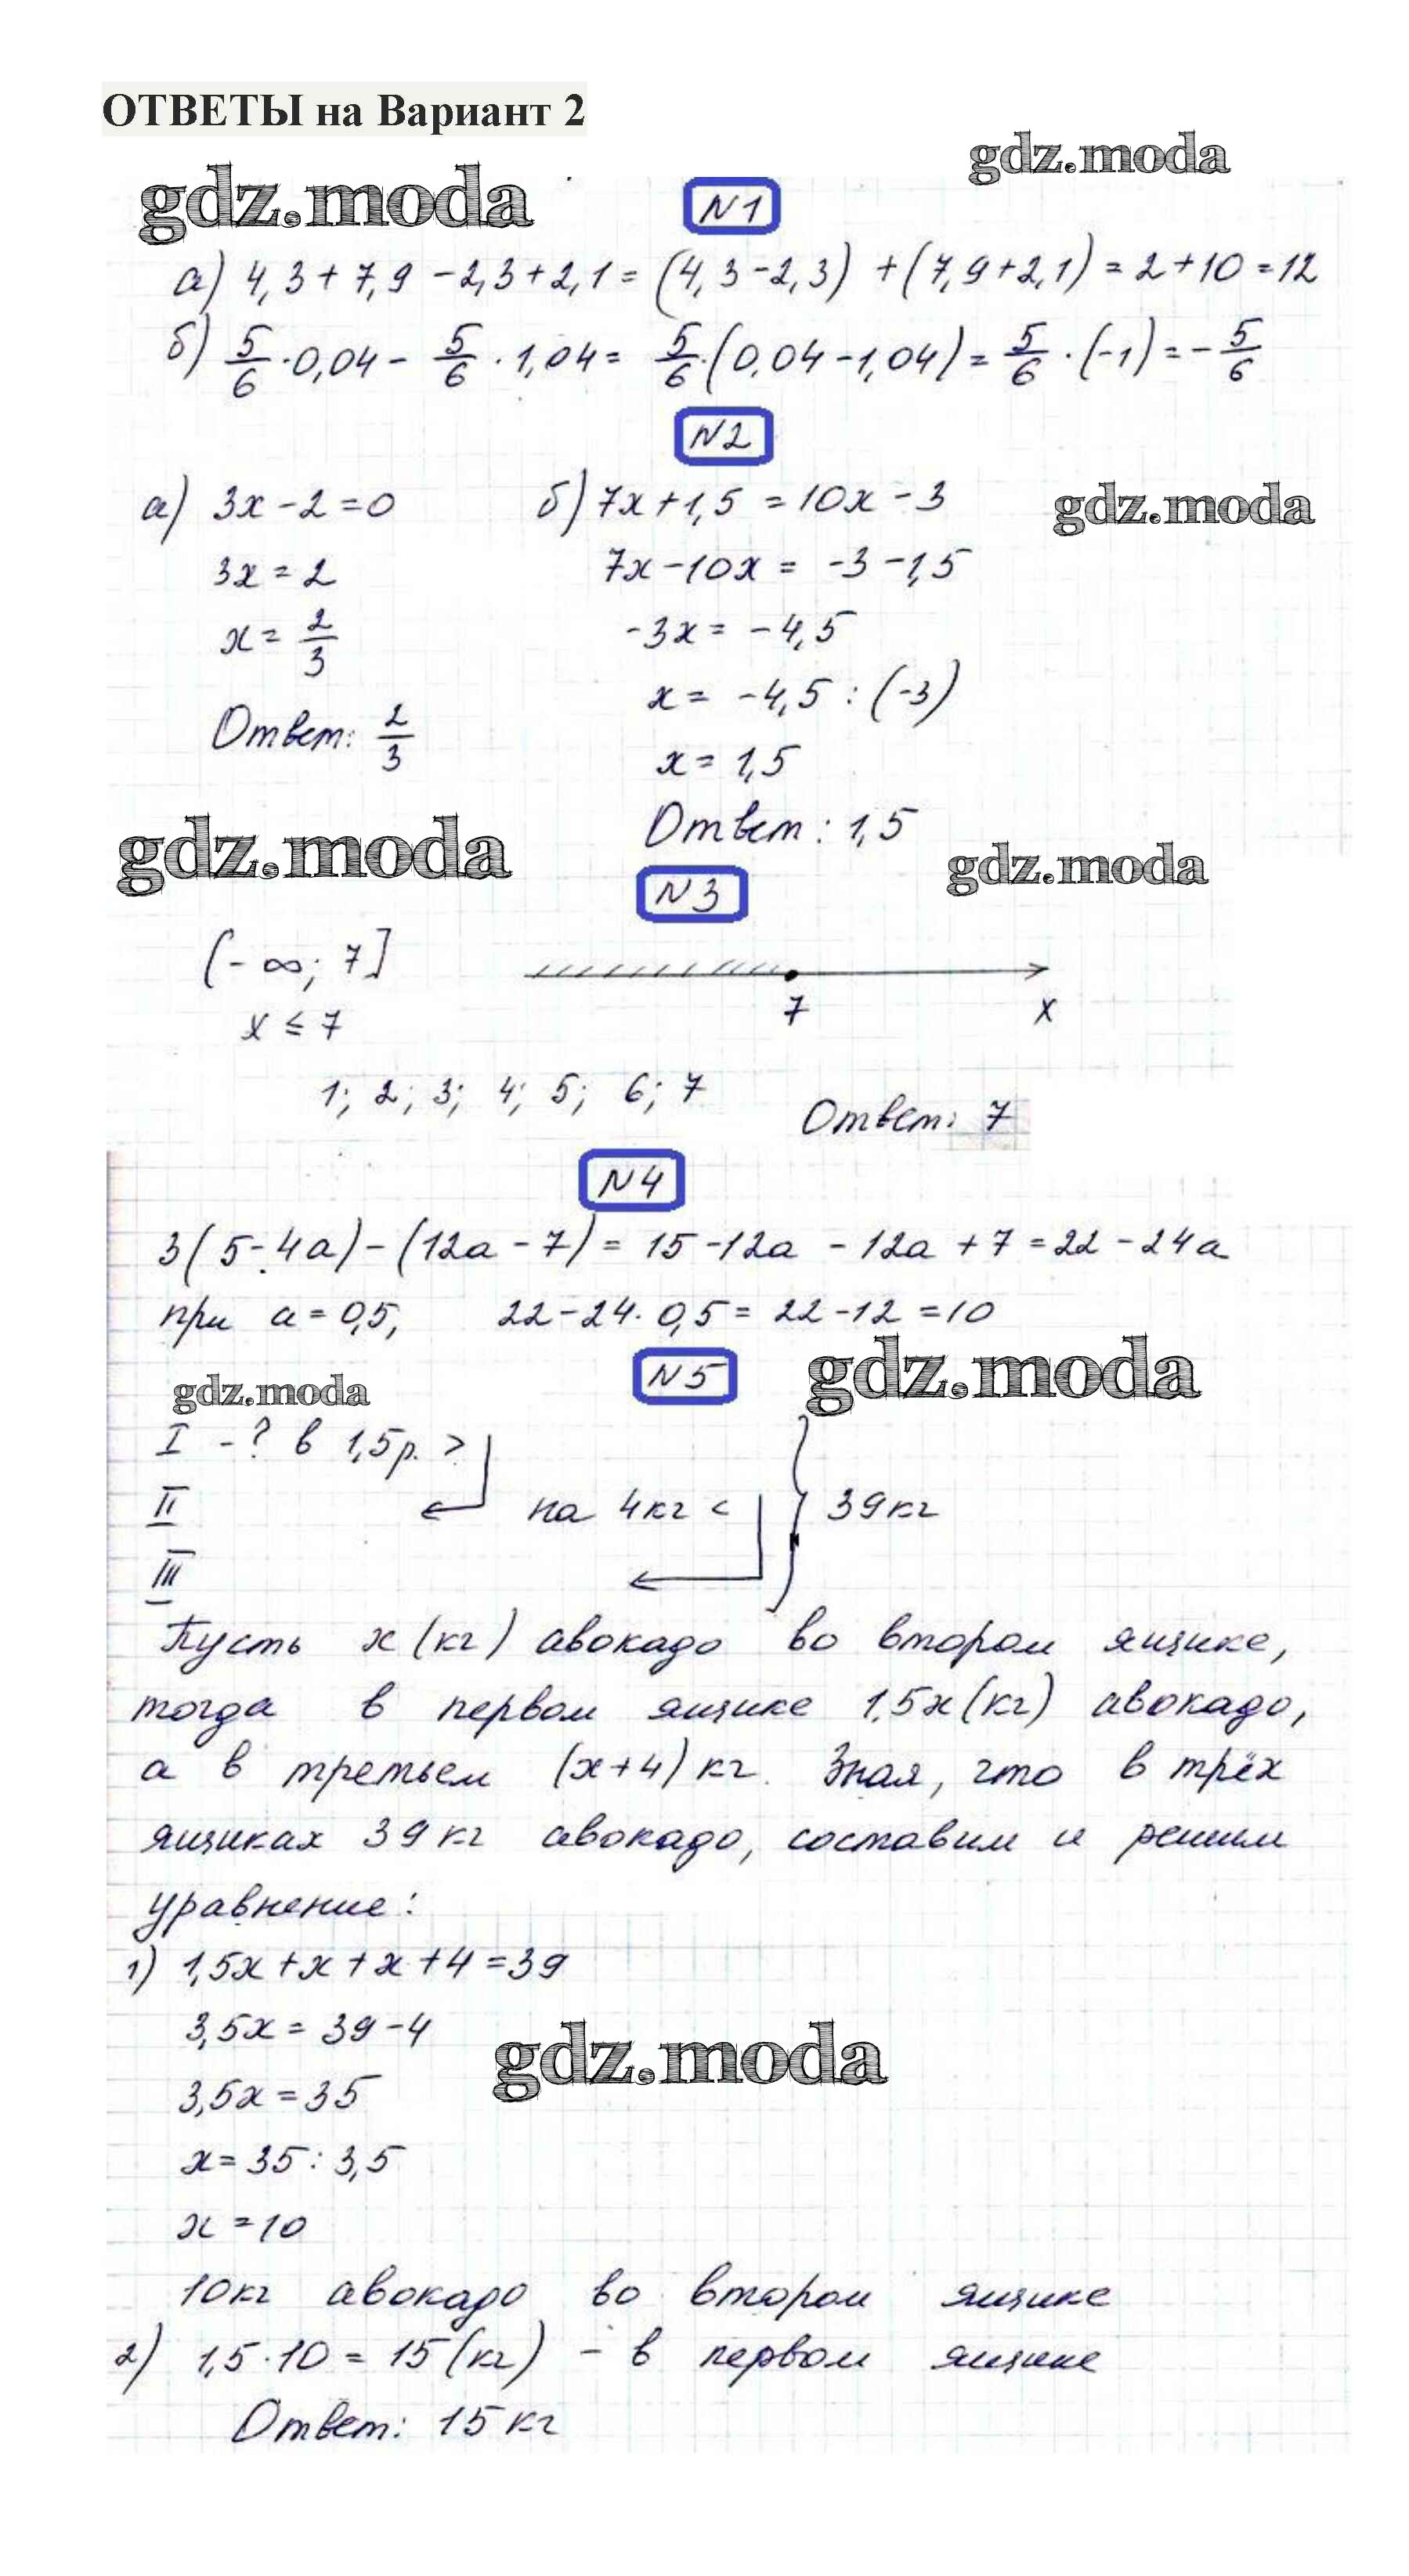 ОТВЕТЫ на Вариант 2
gdz.moda
gdz.moda
N1
а) 4,3 + 7,9 - 2,3 + 2,1 = (4,3 - 2,3) + (7,9 + 2,1) = 2 + 10 = 12
б) 5/6 · 0,04 - 5/6 · 1,04 = 5/6 · (0,04 - 1,04) = 5/6 · (-1) = - 5/6
N2
а) 3x - 2 = 0
3x = 2
x = 2/3
Ответ: 2/3
б) 7x + 1,5 = 10x - 3
7x - 10x = -3 - 1,5
-3x = -4,5
x = -4,5 : (-3)
x = 1,5
Ответ: 1,5
gdz.moda
gdz.moda
gdz.moda
N3
(-∞; 7]
x ≤ 7
7 x
1; 2; 3; 4; 5; 6; 7
Ответ: 7
N4
3(5 - 4a) - (12a - 7) = 15 - 12a - 12a + 7 = 22 - 24a
при a = 0,5, 22 - 24 · 0,5 = 22 - 12 = 10
N5
gdz.moda
gdz.moda
I - ? в 1,5 р. >
II на 4 кг < 39 кг
III
Пусть x (кг) авокадо во втором ящике,
тогда в первом ящике 1,5x (кг) авокадо,
а в третьем (x + 4) кг. Зная, что в трёх
ящиках 39 кг авокадо, составим и решим
уравнение:
1) 1,5x + x + x + 4 = 39
3,5x = 39 - 4
3,5x = 35
x = 35 : 3,5
x = 10
gdz.moda
10 кг авокадо во втором ящике
2) 1,5 · 10 = 15 (кг) - в первом ящике
Ответ: 15 кг